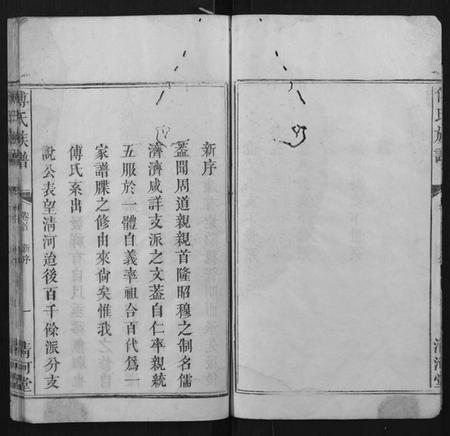 傅氏族譜
清河堂
新序
蓋聞周道親親首隆昭穆之制名儒
濟濟咸詳支派之文蓋自仁率親統
五服於一體自義率祖合百代為一
家譜牒之修由來尚矣惟我
傅氏系出
說公表望清河迨後百千餘派分支
傅氏族譜
卷首
新序
一
清河堂